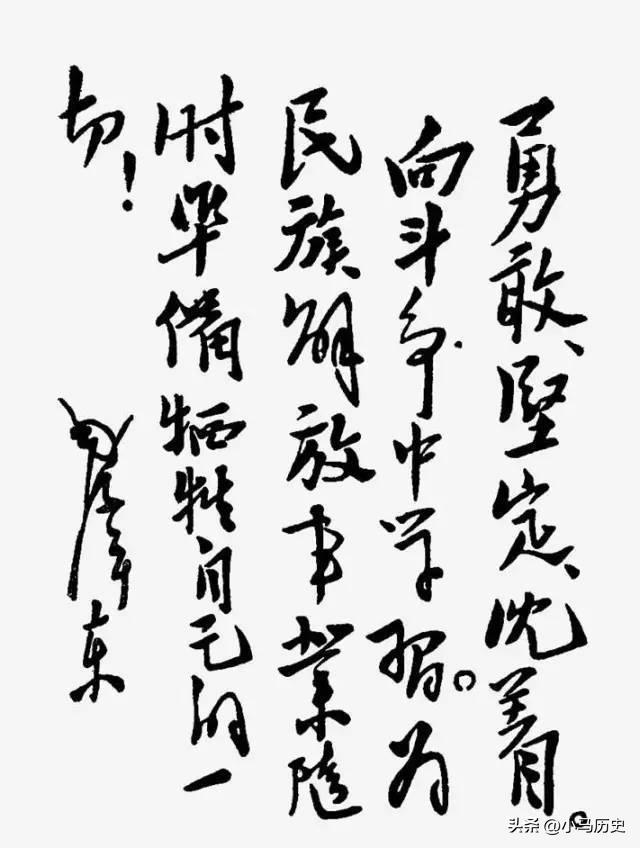 勇敢、坚定、沈着。
向斗争中学习。为
民族解放事业随
时准备牺牲自己的一
切！
毛泽东
头条 @小马历史